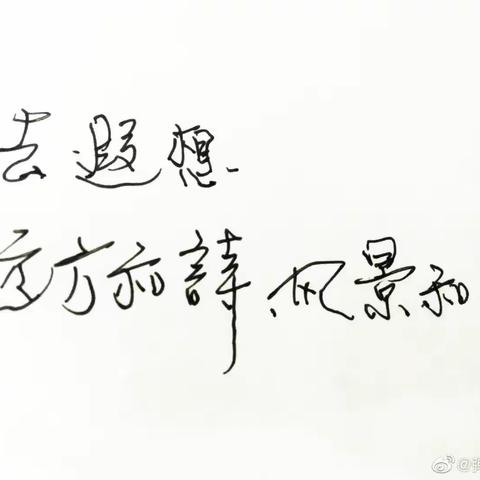 去遐想
远方和詩、风景和